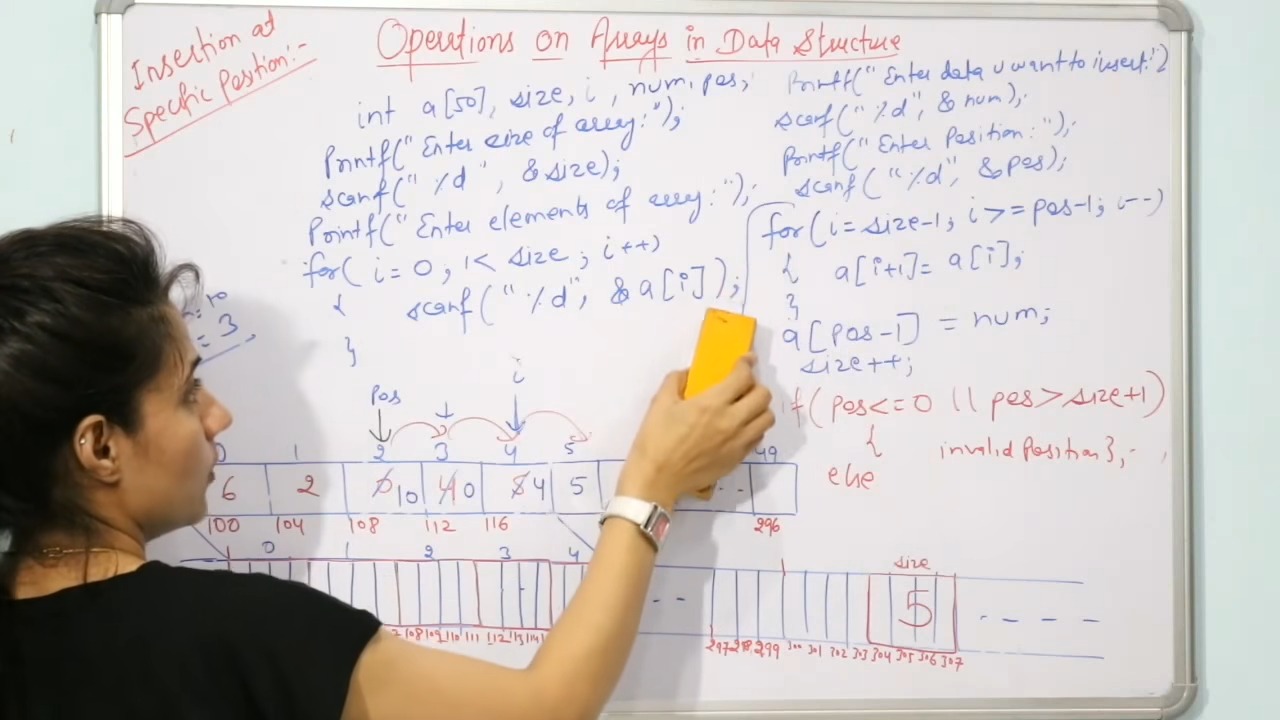 Insertion at
Specific Position:-
Operations on Arrays in Data Structure
int a[50], size, i, num, pos;
Printf("Enter size of array:");
scanf("%d", &size);
Printf("Enter elements of array:");
for(i=0; i< size; i++)
{ scanf("%d", &a[i]);
}
Printf("Enter data u want to insert:")
scanf("%d", & num);
Printf("Enter Position:");
scanf("%d", &pos);
for(i=size-1; i>=pos-1; i--)
{ a[i+1]= a[i];
}
a[pos-1] = num;
size++;
if(pos<=0 || pos>size+1)
{ invalid Position},
else
= 3
i
Pos
0 1 2 3 4 5 49
6 2 6 10 4 0 8 4 5 - -
100 104 108 112 116 296
0 1 2 3 4 size
- - 5 - - - -
108 109 110 111 112 113 114 297 298 299 300 301 302 303 304 305 306 307